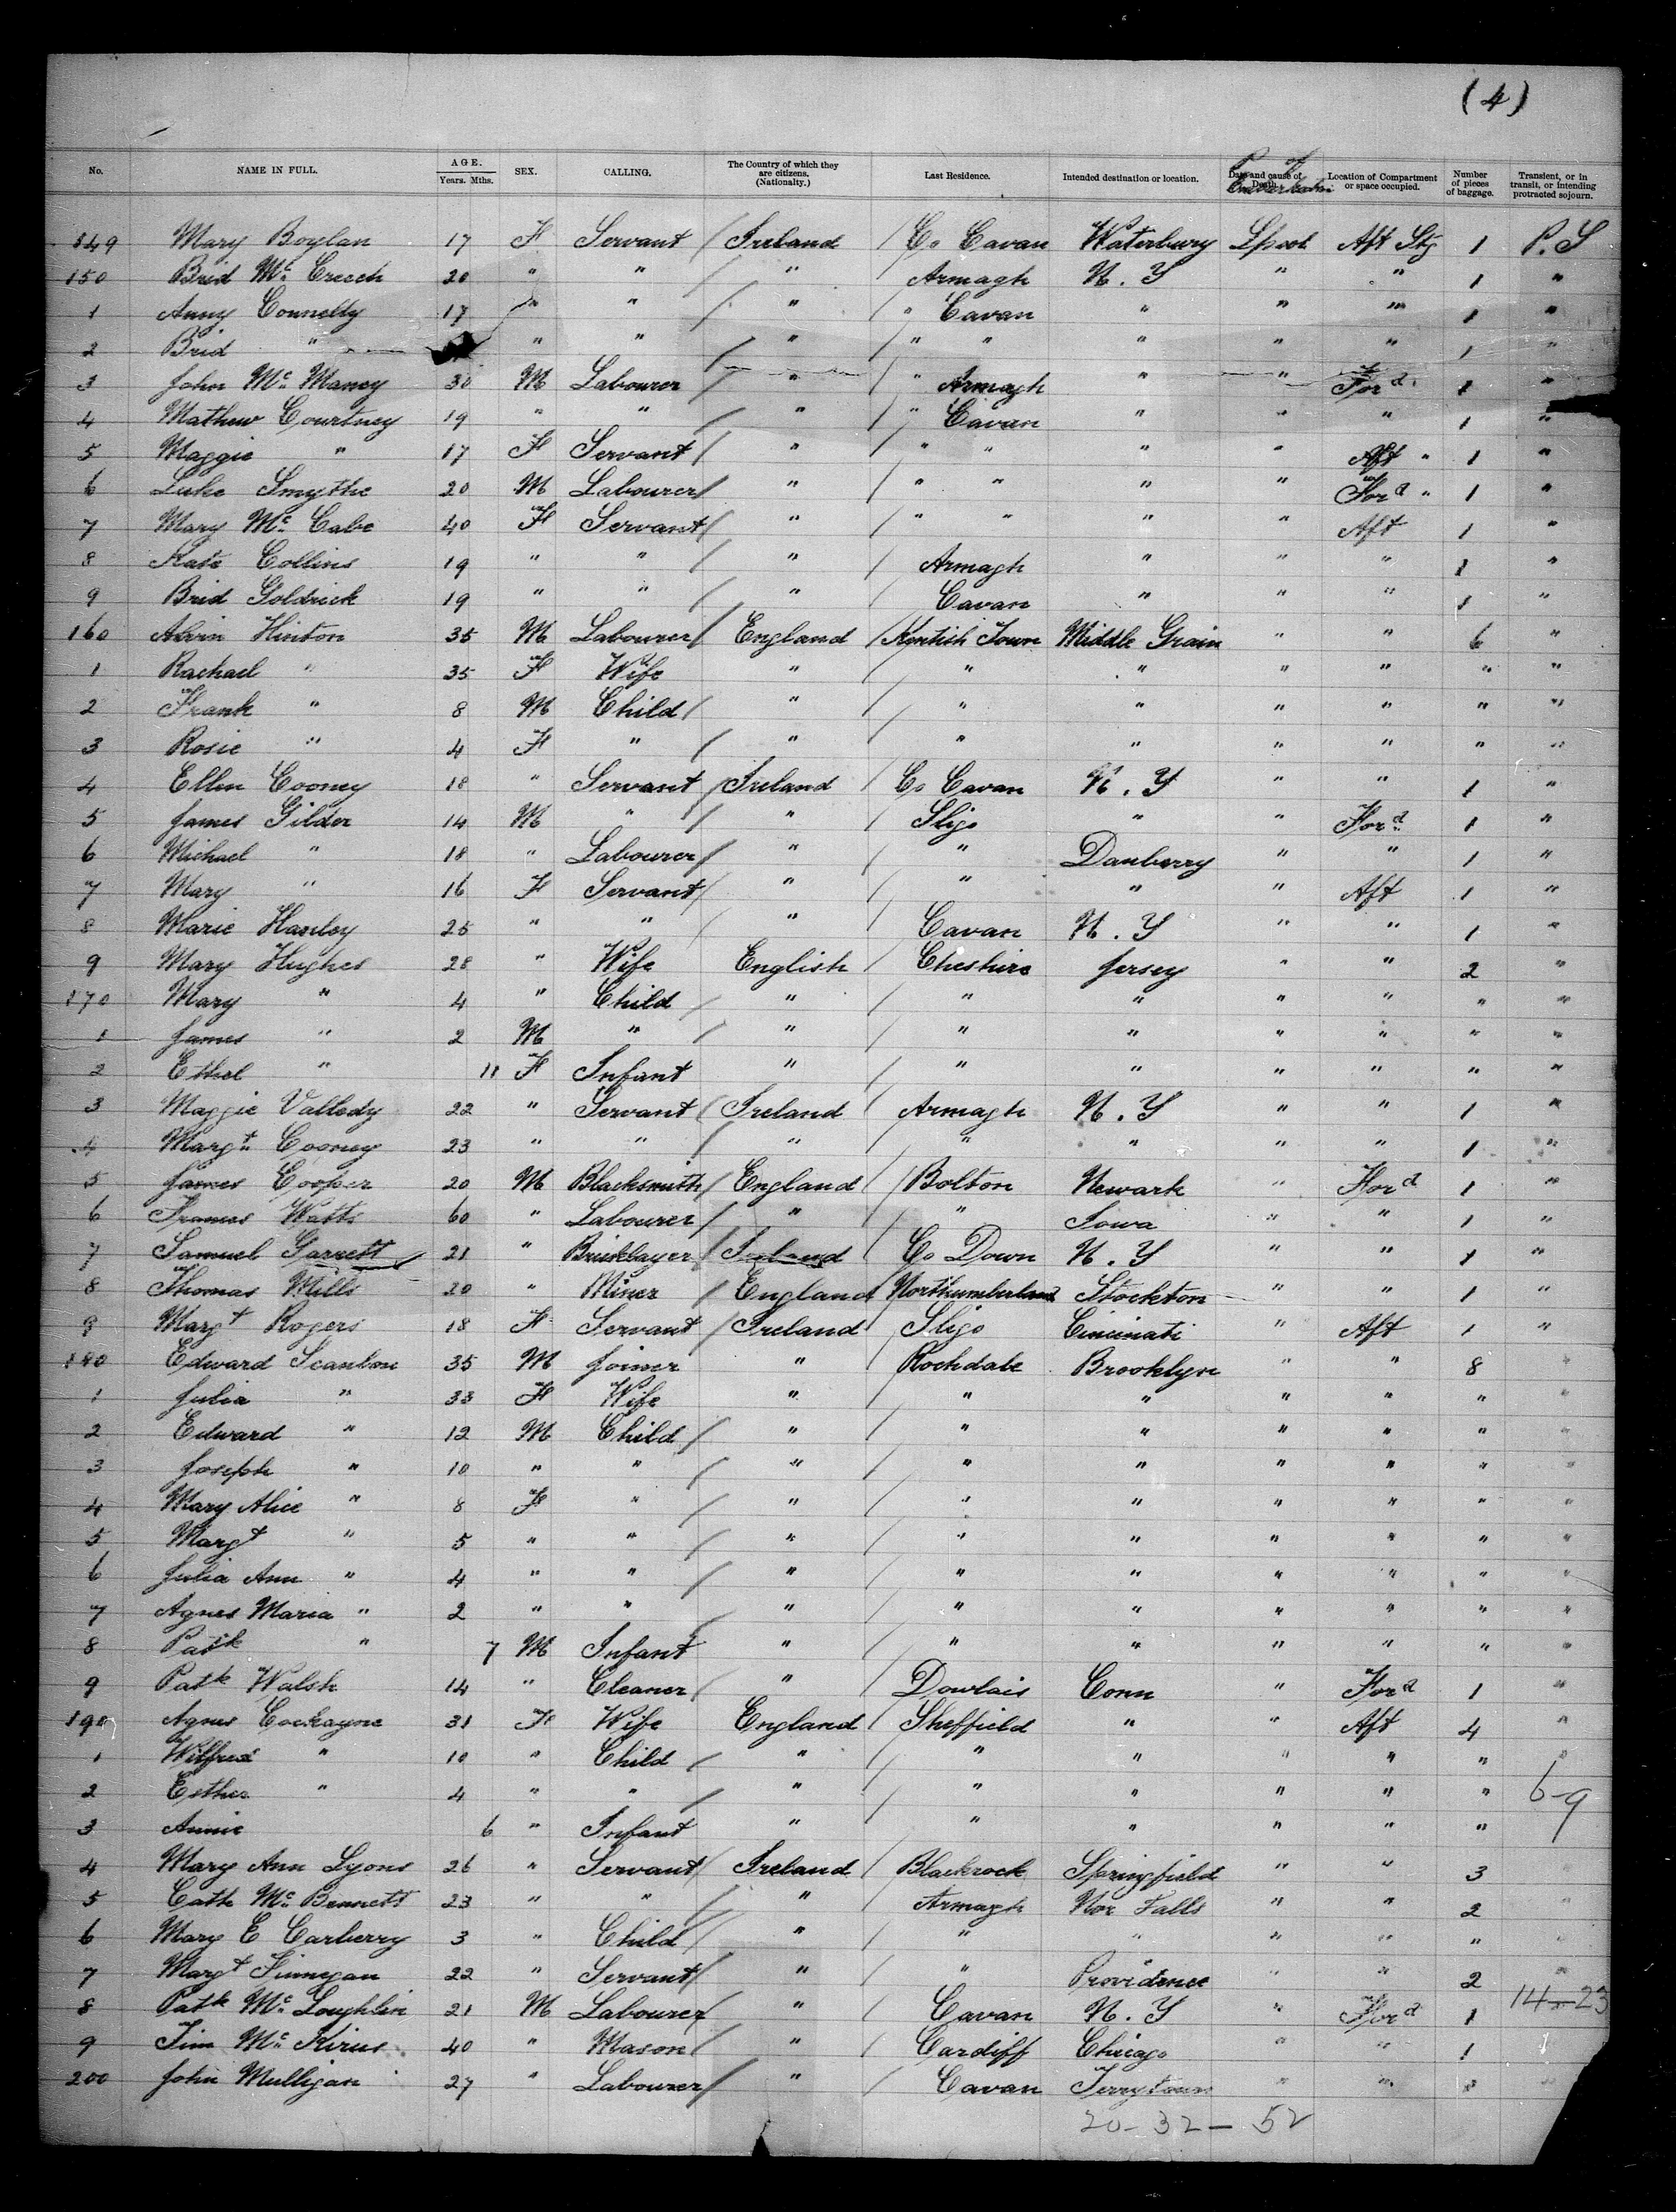 (4)
No. NAME IN FULL. AGE. Years. Mths. SEX. CALLING. The Country of which they are citizens. (Nationalty.) Last Residence. Intended destination or location. Date and cause of Death. Location of Compartment or space occupied. Number of pieces of baggage. Transient, or in transit, or intending protracted sojourn.
149 Mary Boylan 17 F Servant / Ireland / Co Cavan Waterbury Lpool Aft Stg 1 P.S
150 Brid Mc Creech 20 " " / " / Armagh N.Y " " 1 "
1 Anny Connelly 17 " " / " / " Cavan " " " 1 "
2 Brid " " " / " / " " " " " 1 "
3 John Mc Maney 30 M Labourer / " / " Armagh " " Ford 1 "
4 Mathew Courtney 19 " " / " / " Cavan " " " 1 "
5 Maggie " 17 F Servant / " / " " " " Aft " 1 "
6 Luke Smythe 20 M Labourer / " / " " " " Ford " 1 "
7 Mary Mc Cabe 40 F Servant / " / " " " " Aft 1 "
8 Kate Collins 19 " " / " / Armagh " " " 1 "
9 Brid Goldrick 19 " " / " / Cavan " " " 1 "
160 Alvin Hinton 35 M Labourer / England / Kentish Town Middle Grain " " 6 "
1 Rachael " 35 F Wife " " " " " " "
2 Frank " 8 M Child / " / " " " " " "
3 Rosie " 4 F " / " / " " " " " "
4 Ellen Cooney 18 " Servant / Ireland / Co Cavan N.Y " " 1 "
5 James Gilder 14 M " / " / Sligo " " Ford 1 "
6 Michael " 18 " Labourer / " / " Danberry " " 1 "
7 Mary " 16 F Servant / " / " " " Aft 1 "
8 Marie Hanley 25 " " / " / Cavan N.Y " " 1 "
9 Mary Hughes 28 " Wife English / Cheshire Jersey " " 2 "
170 Mary " 4 " Child / " / " " " " " "
1 James " 2 M " / " / " " " " " "
2 Ethel " 11 F Infant " / " " " " " "
3 Maggie Valledy 22 " Servant / Ireland / Armagh N.Y " " 1 "
4 Margt Cooney 23 " " / " / " " " " 1 "
5 James Cooper 20 M Blacksmith / England / Bolton Newark " Ford 1 "
6 Frances Watts 60 " Labourer / " / " Iowa " " 1 "
7 Samuel Garrett 21 " Bricklayer / Ireland / Co Down N.Y " " 1 "
8 Thomas Mills 20 " Miner / England / Northumberland Stockton " " 1 "
9 Margt Rogers 18 F Servant / Ireland / Sligo Cincinati " Aft 1 "
180 Edward Scanlon 35 M Joiner " / Rochdale Brooklyn " " 8 "
1 Julia " 33 F Wife " / " " " " " "
2 Edward " 12 M Child / " / " " " " " "
3 Joseph " 10 " " / " / " " " " " "
4 Mary Alice " 8 F " / " / " " " " " "
5 Margt " 5 " " / " / " " " " " "
6 Julia Ann " 4 " " / " / " " " " " "
7 Agnes Maria " 2 " " / " / " " " " " "
8 Patk " 7 M Infant " / " " " " " "
9 Patk Walsh 14 " Cleaner / " / Dowlais Conn " Ford 1 "
190 Agnes Cockayne 31 F Wife England / Sheffield " " Aft 4 "
1 Wilfred " 10 " Child / " / " " " " " "
2 Esther " 4 " " / " / " " " " "
6-9
3 Annie 6 " Infant " / " " " " "
4 Mary Ann Lyons 26 " Servant / Ireland / Blackrock Springfield " " 3
5 Cath Mc Bennett 23 " " / " / Armagh Nor Falls " " 2 "
6 Mary E Carberry 3 " Child / " / " " " " " "
7 Margt Finnegan 22 " Servant / " / " Providence " " 2 "
8 Patk Mc Loughlin 21 M Labourer / " / Cavan N.Y " Ford 1
14-23
9 Jim Mc 40 " Mason / " / Cardiff Chicago " " 1
200 John Mulligan 27 " Labourer / " / Cavan Terrytown " "
20-32-52